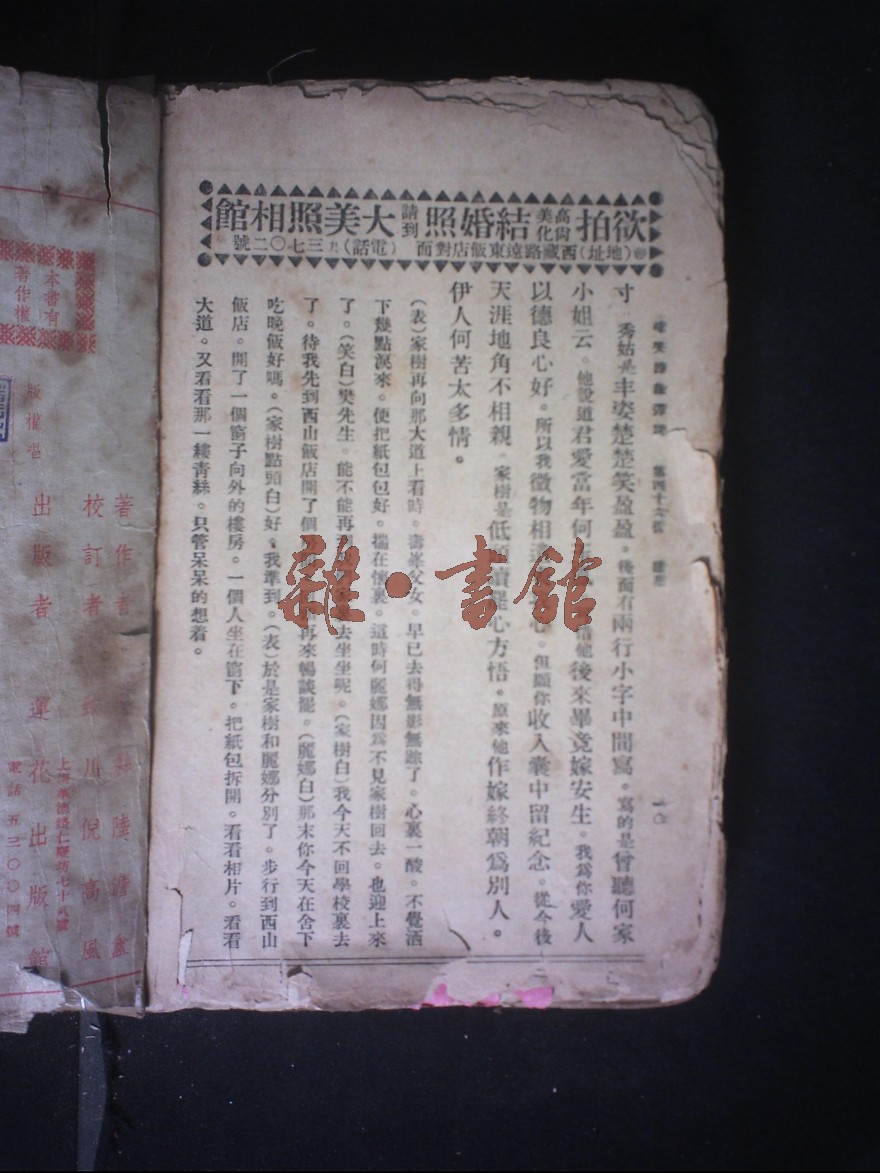 欲拍高尚美化結婚照請到大美照相館
(地址)西藏路遠東飯店對面 (電話)九三七〇二號
第四十六
一〇
寸 秀姑是丰姿楚楚笑盈盈。後面有兩行小字中間寫。寫的是曾聽何家
小姐云。他說道君愛當年何 他後來畢竟嫁安生。我爲你愛人
以德良心好。所以我微物相 心。但願你收入囊中留紀念。從今後
天涯地角不相親。家樹是低 心方悟。原來他作嫁終朝爲別人。
伊人何苦太多情。
(表)家樹再向那大道上看時。壽峯父女。早已去得無影無踪了。心裏一酸。不覺洒
下幾點淚來。便把紙包包好。揣在懷裏。這時何麗娜因爲不見家樹回去。也迎上來
了。(笑白)樊先生。能不能再 去坐坐呢。(家樹白)我今天不回學校裏去
了。待我先到西山飯店開了個 再來暢談罷。(麗娜白)那末你今天在舍下
吃晚飯好嗎。(家樹點頭白)好。我準到。(表)於是家樹和麗娜分別了。步行到西山
飯店。開了一個窗子向外的樓房。一個人坐在窗下。把紙包拆開。看看相片。看看
大道。又看看那一縷青絲。只管呆呆的想着。
雜·書館
本書有
著作權
版權
著作者 陸澹盦
校訂者 川倪高風
出版者 蓮花出版館
上海 德路仁慶坊七十 號
電話五三〇〇四號